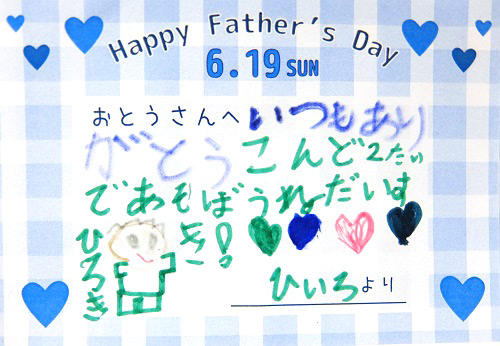 Happy Father's Day
6.19 SUN
おとうさんへ いつもあり
がとう こんど2たい
であそぼうねだいす
き!
ひろき
ひいろより